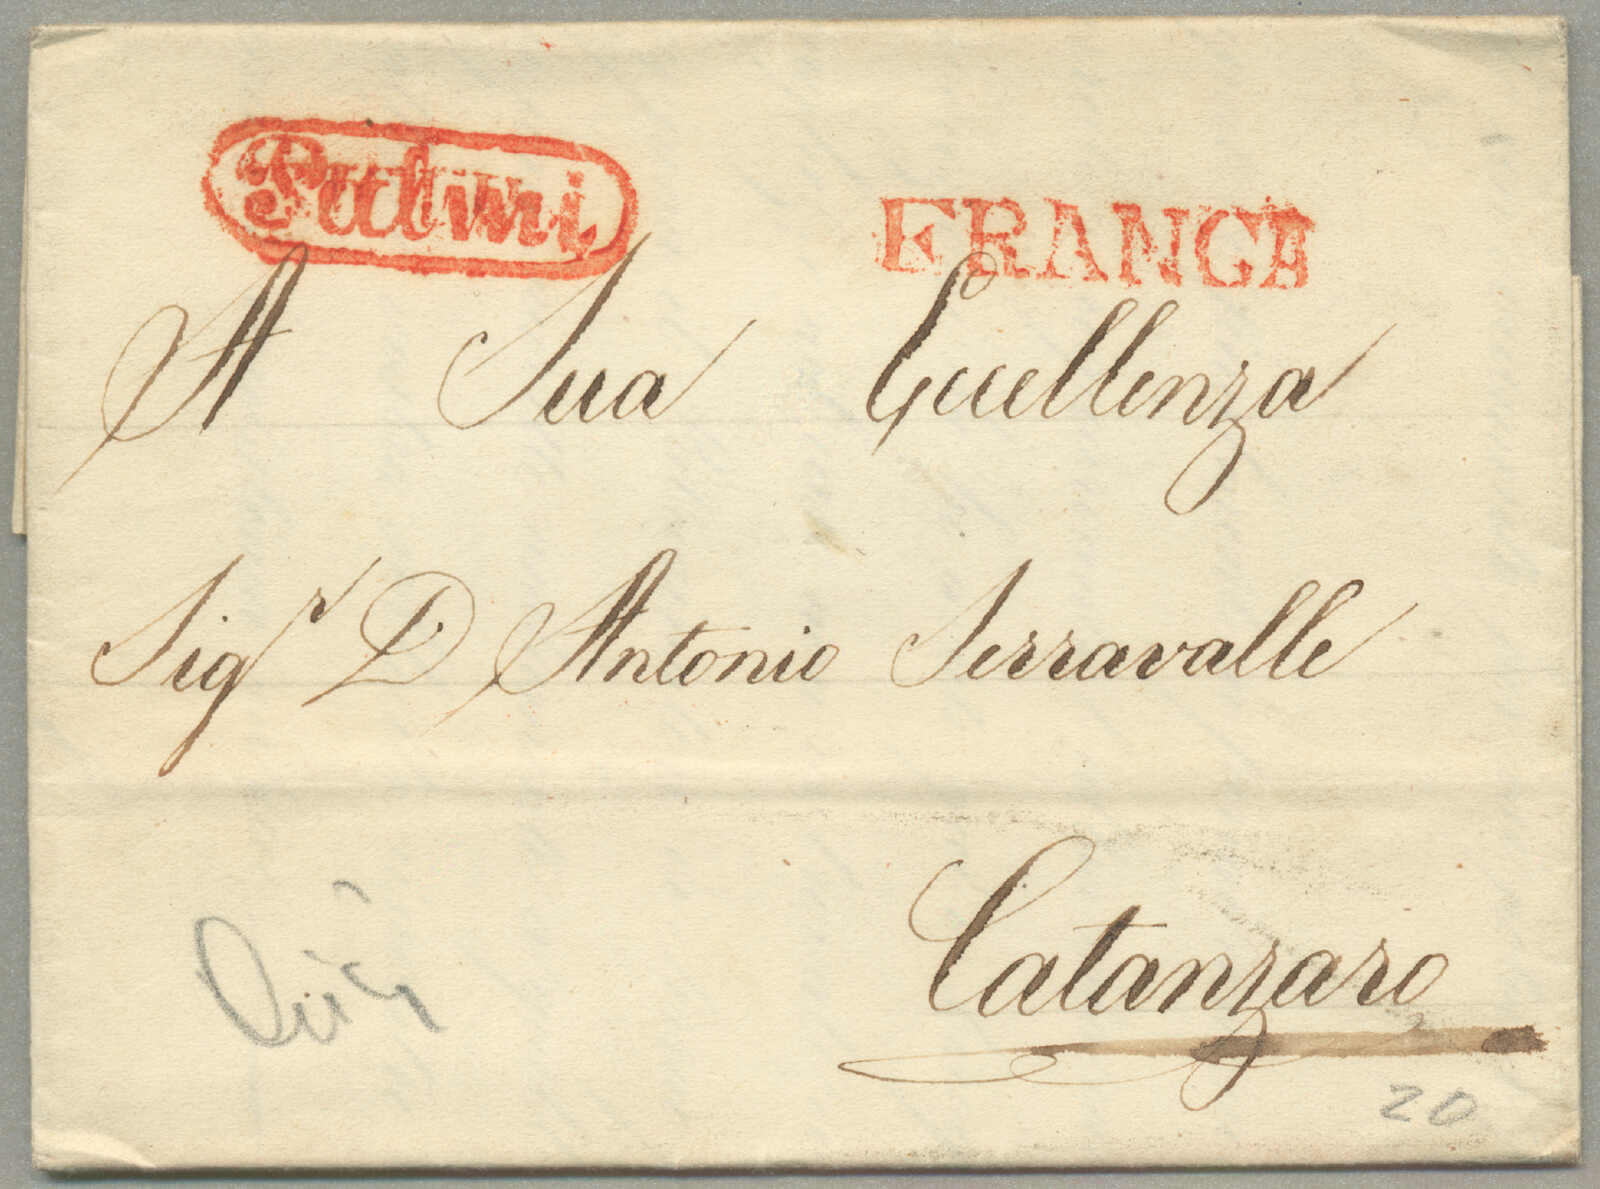 Palmi
FRANCA
A Sua Eccellenza
Sigr D Antonio Serravalle
Catanzaro
20